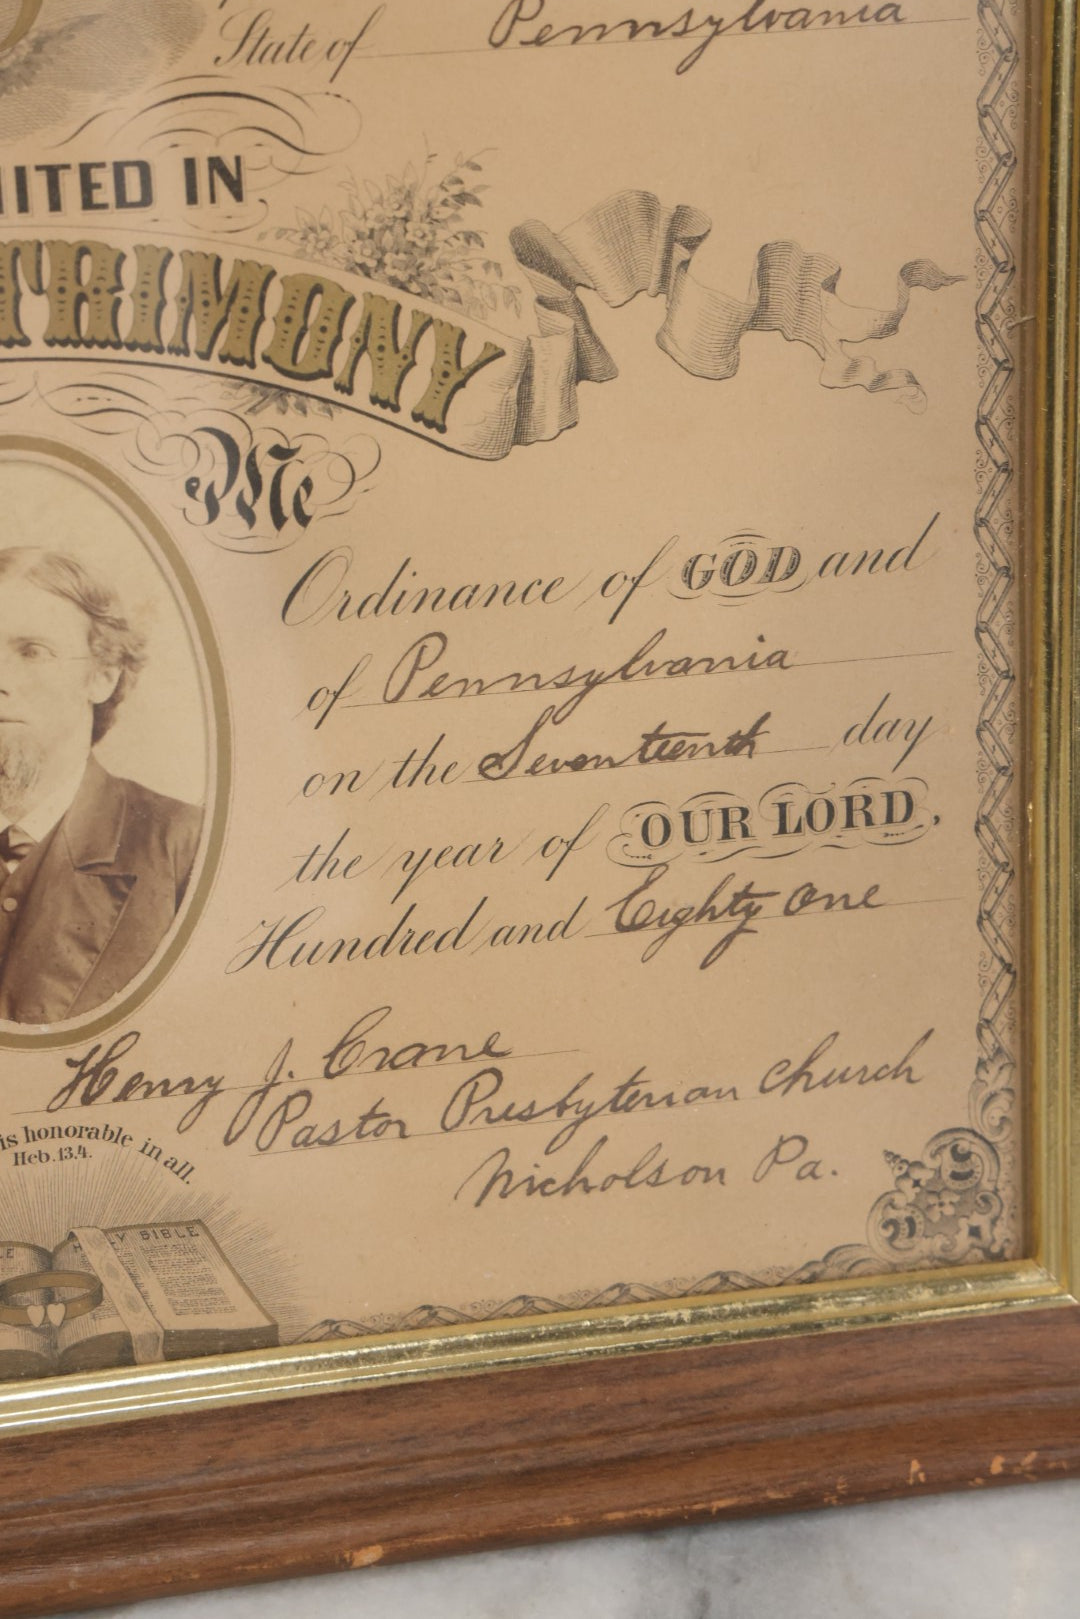 State of Pennsylvania
NITED IN
TRIMONY
Me
Ordinance of GOD and
of Pennsylvania
on the Seventeenth day
the year of OUR LORD,
Hundred and Eighty One
Henry J. Crane
Pastor Presbyterian Church
Nicholson Pa.
is honorable in all.
Heb. 13.4.
LE HOLY BIBLE